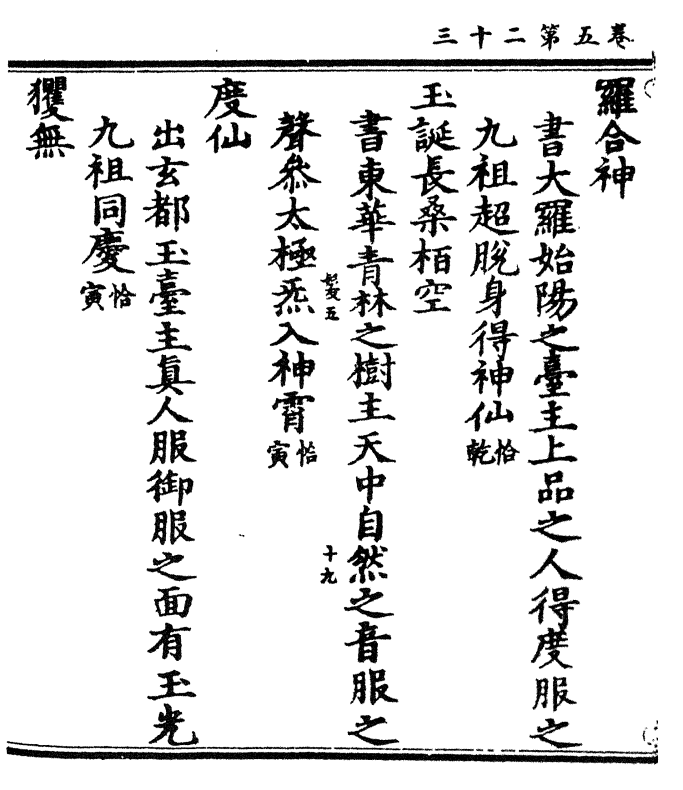 卷五第二十三
羅合神
書大羅始陽之臺主上品之人得度服之
九祖超脫身得神仙恰乾
玉誕長桑栢空
書東華青林之樹主天中自然之音服之
髮五
十九
聲叅太極炁入神霄恰寅
度仙
出玄都玉臺主真人服御服之面有玉光
九祖同慶恰寅
玃無